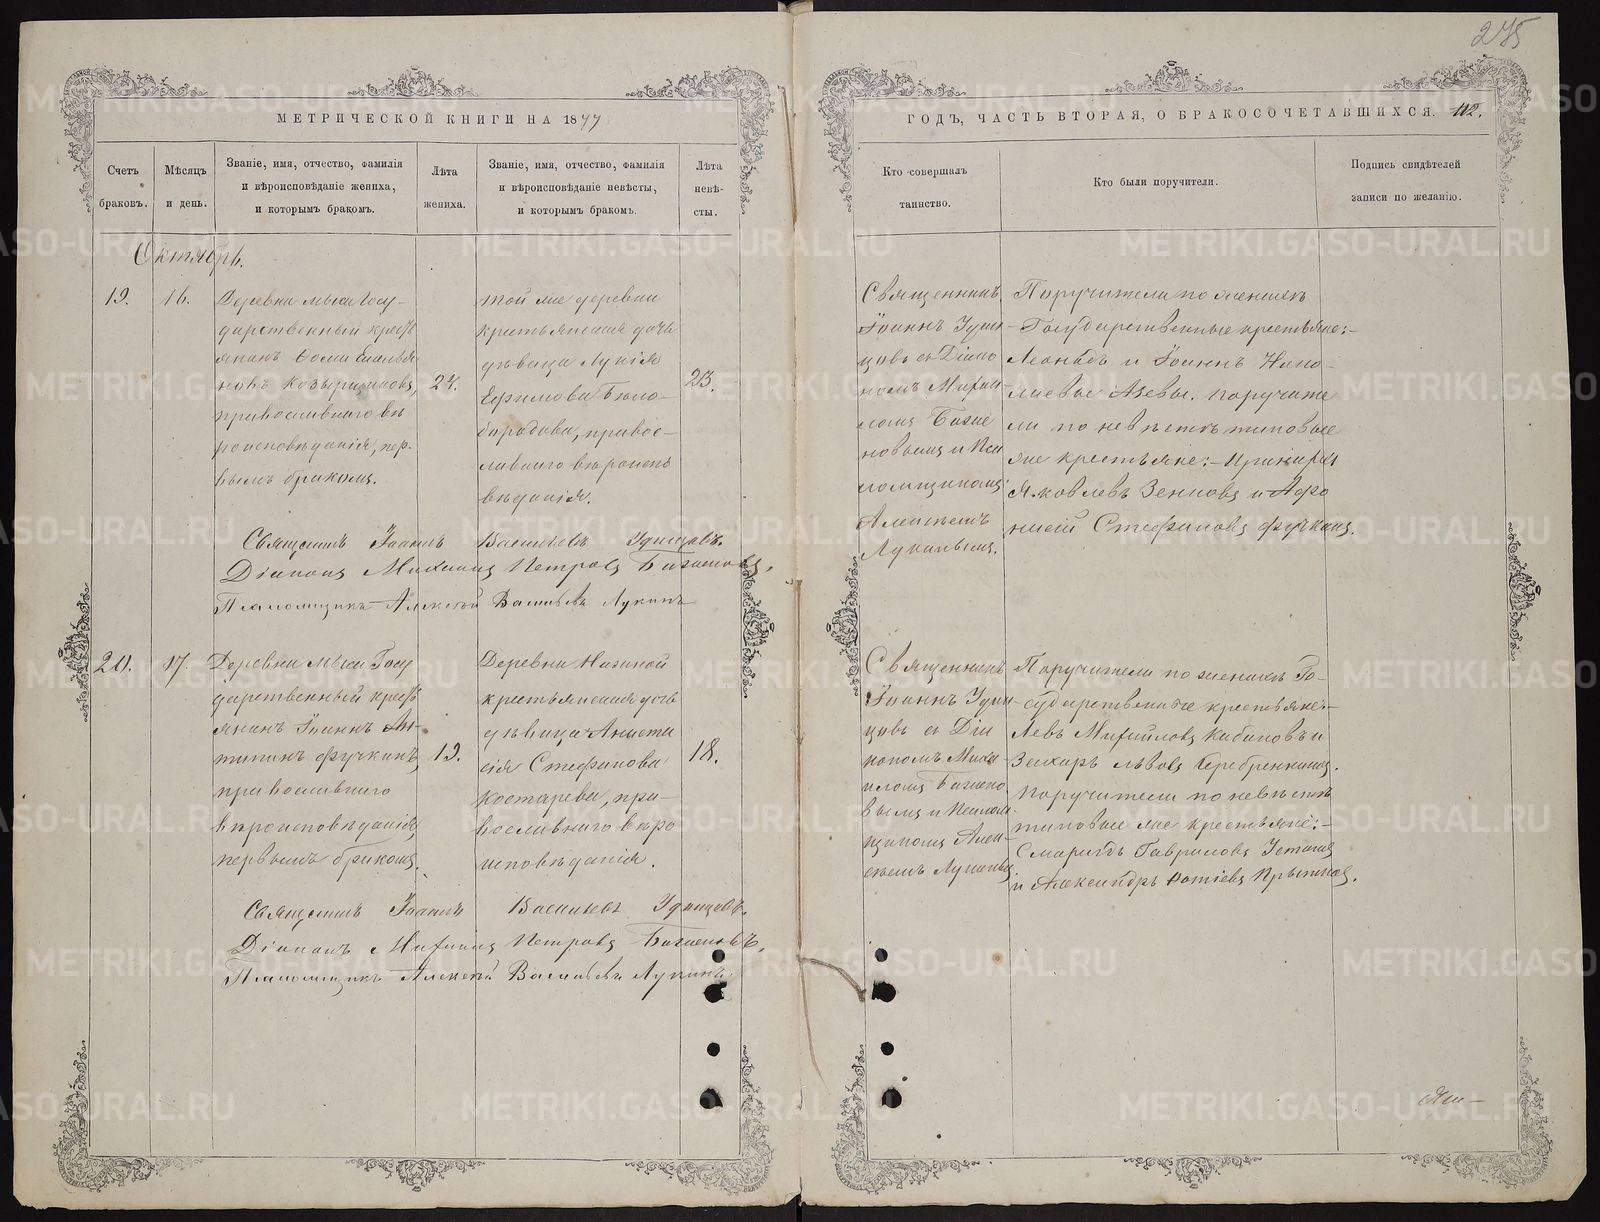 275
МЕТРИЧЕСКОЙ КНИГИ НА 1877
ГОДЪ, ЧАСТЬ ВТОРАЯ, О БРАКОСОЧЕТАВШИХСЯ. 112.
Счетъ
браковъ.
Мѣсяцъ
и день.
Званіе, имя, отчество, фамилія
и вѣроисповѣданіе жениха,
и которымъ бракомъ.
Лѣта
жениха.
Званіе, имя, отчество, фамилія
и вѣроисповѣданіе невѣсты,
и которымъ бракомъ.
Лѣта
невѣ-
сты.
Кто совершалъ
таинство.
Кто были поручители.
Подпись свидѣтелей
записи по желанію.
Октябрь.
19.
16.
Деревни Мыса Госу-
дарственный крест
янинъ Ѳома Емелья
новъ Козыриц
православнаго вѣ
роисповѣданія, пер-
вымъ бракомъ.
24.
той же деревни
крестьянская дочь
дѣвица Лукія
Ефимова Бѣло-
бородова, правос-
лавнаго вѣроисп
вѣданія.
23.
Священникъ
Іоаннъ Удин
цовъ съ Діако
номъ Михаи
ломъ Бажен
новымъ и Пса
ломщикомъ
Алексѣемъ
Лукинымъ.
Поручители по женихѣ
Государственные крестьяне:-
Леонидъ и Іоаннъ Нико-
лаевы Азевы. поручите
ли по невѣстѣ таковые
же крестьяне:-
Яковлевъ Зенковъ и Афо
насій Стефановъ Фучкинъ.
Священникъ Іоаннъ Васильевъ Удинцовъ.
Діаконъ Михаилъ Петровъ Баженовъ,
Псаломщикъ Алексѣй Васильевъ Лукинъ
20.
17.
Деревни Мыса Госу
дарственный крест
янинъ Іоаннъ Ан-
типинъ Фучкинъ,
православнаго
вѣроисповѣданія,
первымъ бракомъ.
19.
Деревни
крестьянская дочь
дѣвица Анаста
сія Стефанова
Костарева, пра-
вославнаго вѣро
исповѣданія.
18.
Священникъ
Іоаннъ Удин
цовъ съ Діа
кономъ Миха
иломъ Бажено
вымъ и Псалом
щикомъ Алек-
сѣемъ Лукинымъ.
Поручители по женихѣ Го-
сударственные крестьяне:-
Левъ Михайловъ Кабановъ и
Захаръ Львовъ Серебренниковъ.
Поручители по невѣстѣ
таковые же крестьяне:-
Гавриловъ
и Александръ Фотіевъ
Священникъ Іоаннъ Васильевъ Удинцовъ.
Діаконъ Михаилъ Петровъ Баженовъ,
Псаломщикъ Алексѣй Васильевъ Лукинъ.
METRIKI.GASO-URAL.RU